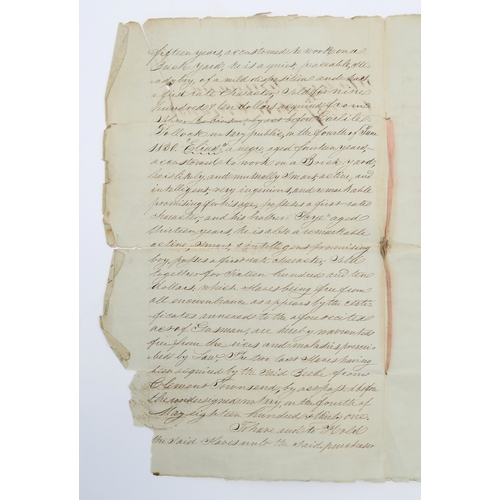 fifteen years, accustomed to work on a
Brick Yard, he is a quiet, peaceable,
boy, of a mild disposition and
first rate Character, Sold for nine
hundred & ten dollars acquired from
by act before Carlile
Pollock notary public, on the fourth of
"Elick" a negro, aged fourteen years,
accustomed to work on a Brick yard,
he is lively, and mutually Smart, active, and
intelligent, very ingenious, and remarkable
promising for his age, possesses a first-rate
Character, and his brother aged
thirteen years, he is also a remarkable
active, Smart, intelligent promising
boy, possess a first rate Character. Sold
together for Sixteen hundred and ten
Dollars, which Slaves being free from
all encumbrance as appears by the certi-
ficates annexed to the aforerecited
acts of are hereby warranted
free from the vices and maladies prescri-
bed by Law. The two last Slaves having
been acquired by the said from
Clement Townsend, by act passed before
the undersigned notary, on the fourth of
May eighteen hundred & thirty one.
To have and to Hold
the Said Slaves unto the Said purchaser